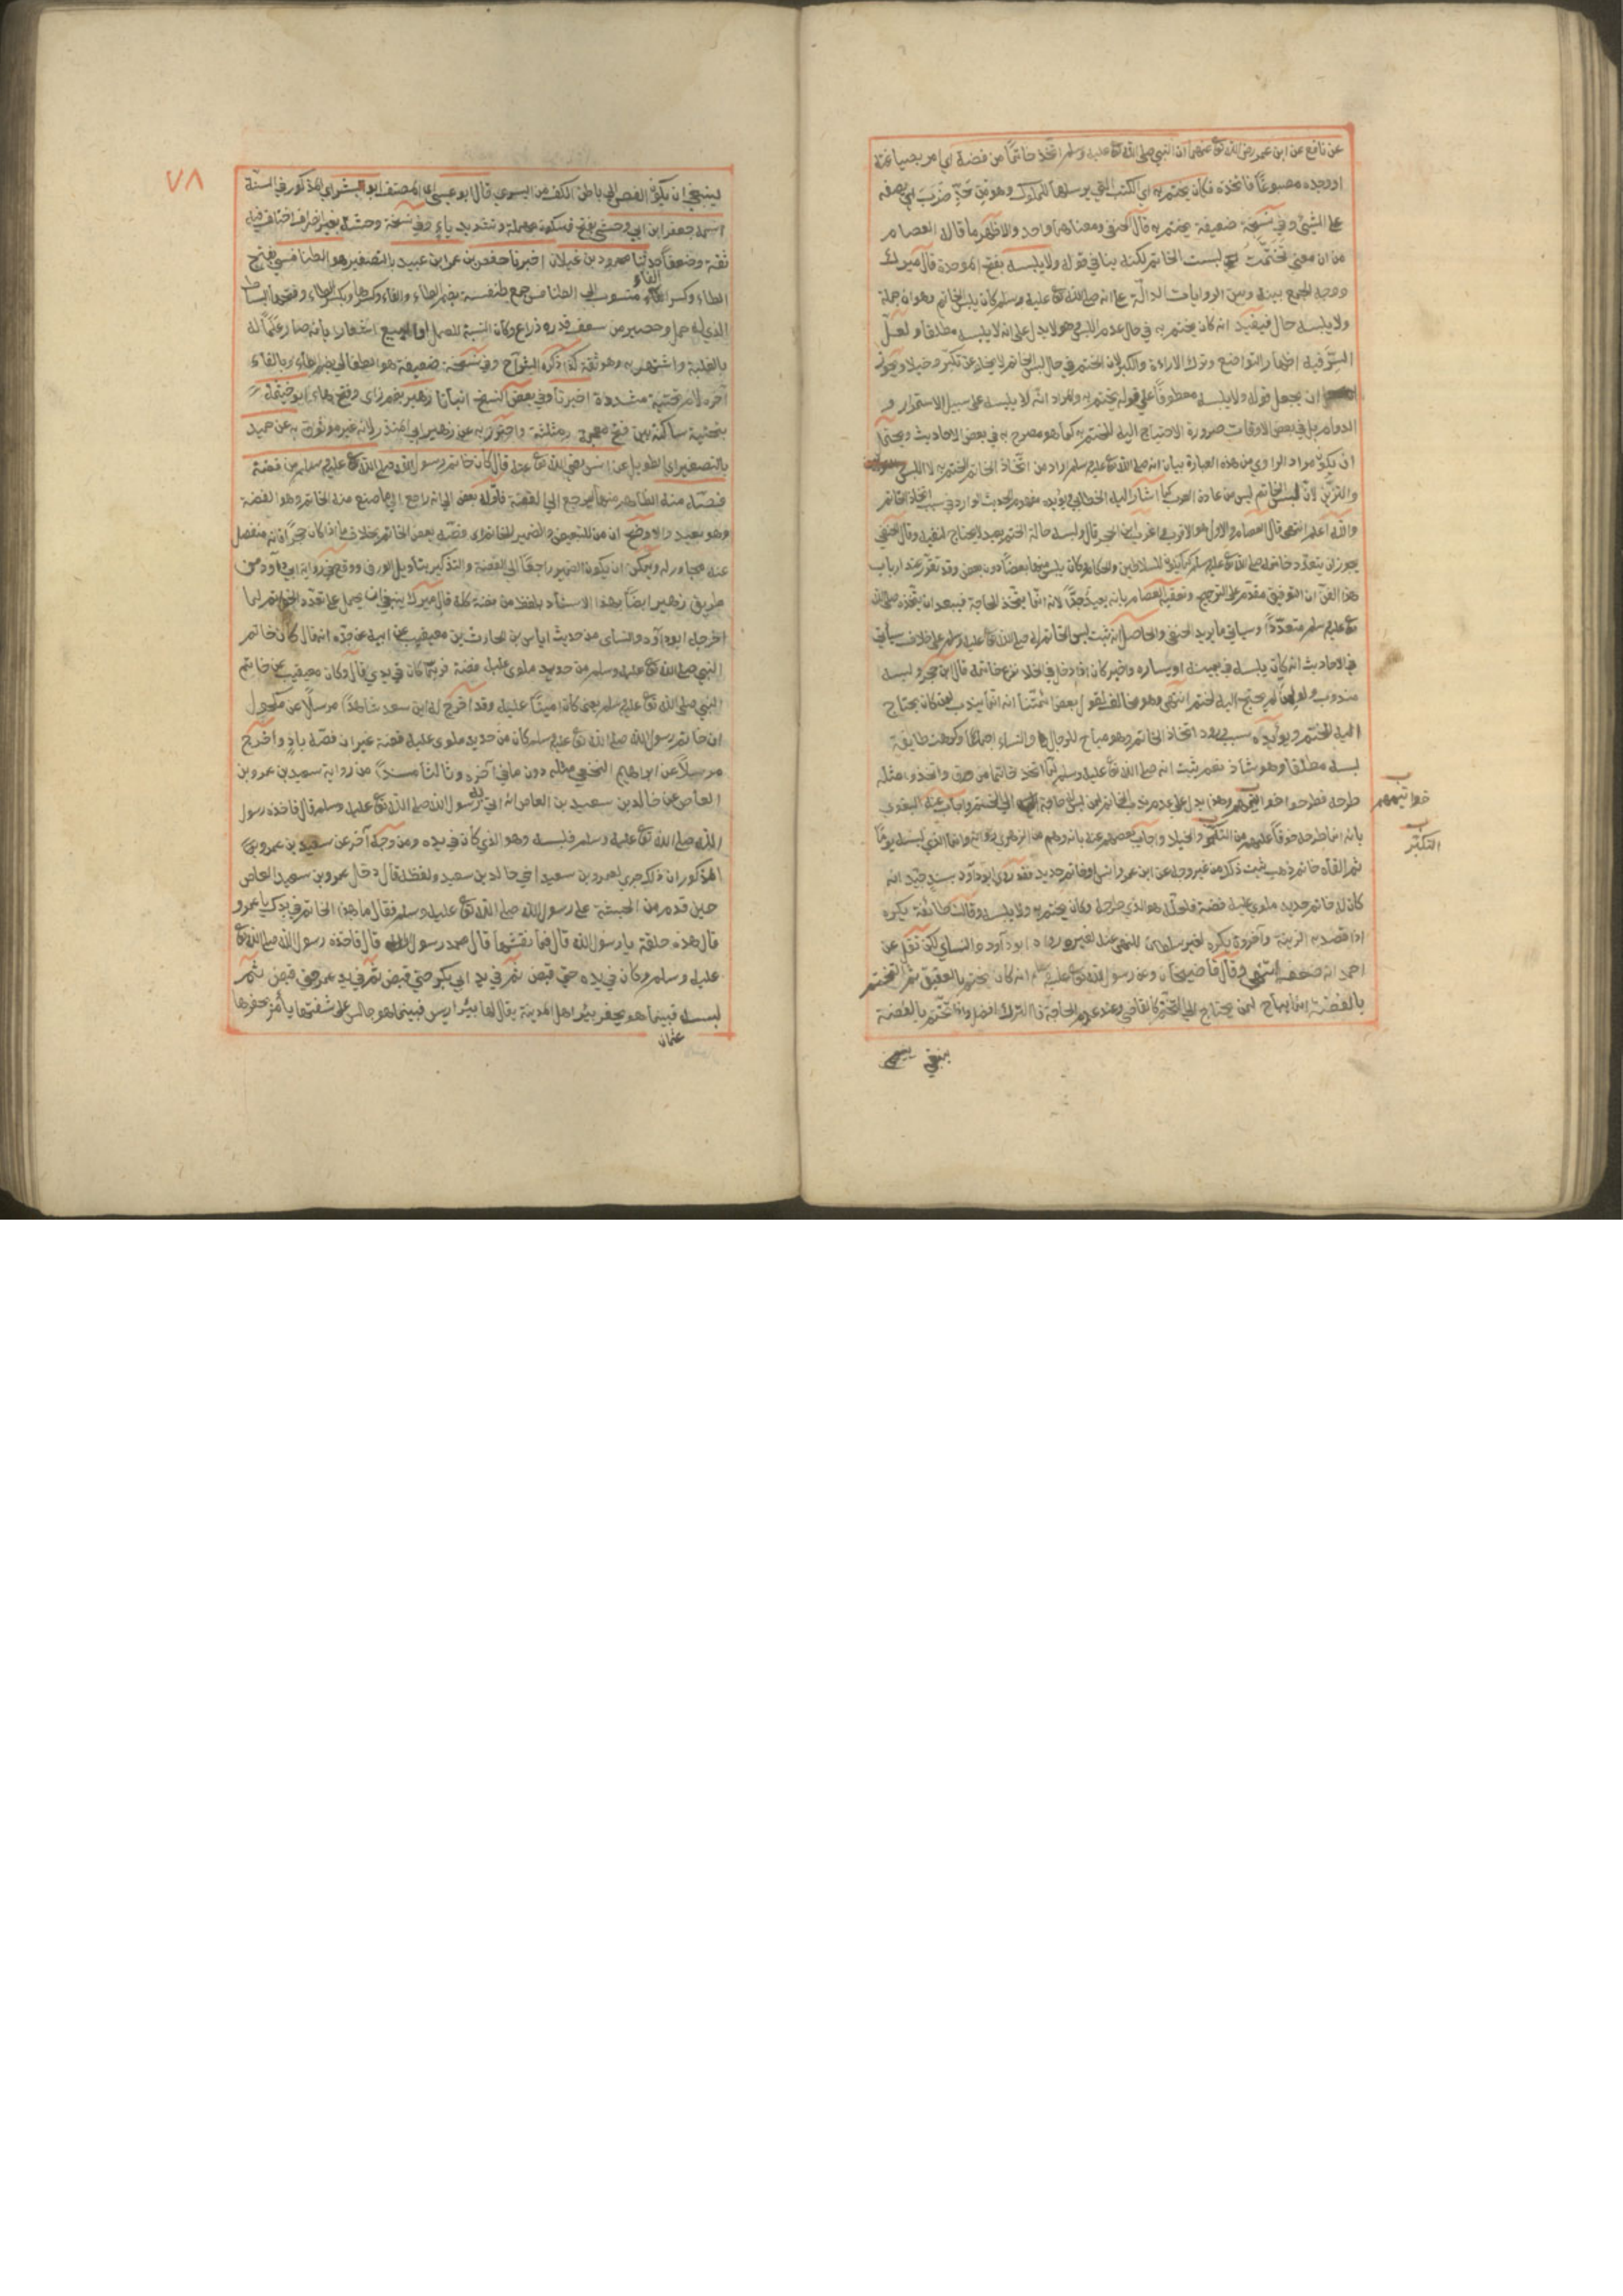 عن نافع عن ابن عمر رضي الله تع عنهما ان النبي صلى الله تع عليه وسلم اتخذ خاتما من فضة اي امر بصياغته
او وجده مصبوغا فاتخذه فكان يختم به اي الكتب التي يرسلها للملوك وهو من حد ضرب اي يضعه
على الشيئ وفي نسخة ضعيفة يختتم به قال الحنفي ومعناهما واحد والاظهر ما قاله العصام
من ان معنى تختمت لبست الخاتم لكنه ينافي قوله ولا يلبسه بفتح الموحدة قال ميرك
ووجه الجمع بينه وبين الروايات الدالة على انه صلى الله تع عليه وسلم كان يلبس الخاتم وهو ان جملة
ولا يلبسه حال فيفيد انه كان يختم به في حال عدم اللبس وهو لا يدل على انه لا يلبسه مطلقا ولعل
السر فيه اظهار التواضع وترك الاراءة والكبر لان الختم في حال لبس الخاتم لا يخلو عن تكبر وخيلاء ويجوز
ان يجعل قوله ولا يلبسه معطوفا على قوله يختم به والمراد انه لا يلبسه على سبيل الاستمرار و
الدوام بل في بعض الاوقات ضرورة الاحتياج اليه للختم به كما هو مصرح به في بعض الاحاديث ويحتمل
ان يكون مراد الراوي من هذه العبارة بيان انه صلى الله تع عليه وسلم اراد من اتخاذ الخاتم الختم به لا اللبس
والتزين لان لبس الخاتم ليس من عادة العرب كما اشار اليه الخطابي ويؤيده مفهوم الحديث الوارد في سبب اتخاذ الخاتم
والله اعلم انتهى قال العصام والاول هو الاقرب واغرب ابن الحجر قال ولبسه حالة الختم بعيد لا يحتاج لنفيه وقال الحنفي
يجوز ان يتعدد خاتمه صلى الله تع عليه وسلم كما يكون للسلاطين والحكام وكان يلبس منها بعضا دون بعض وقد تقرر عند ارباب
هذا الفن ان التوفيق مقدم على الترجيح وتعقبه العصام بانه بعيد جدا لانه انما يتخذ للحاجة فيبعد ان يتخذ صلى الله
تع عليه وسلم متعددا وسياتي ما يؤيد الحنفي والحاصل انه ثبت لبس الخاتم له صلى الله تع عليه وسلم على خلاف سياتي
في الاحاديث انه كان يلبسه في يمينه او يساره وخبر كان اذا دخل في الخلا نزع خاتمه قال ابن حجر ولبسه
مندوب ولو لمن لم يحتج اليه لختم انتهى وهو مخالف لقول بعض ائمتنا انه انما يندب لمن كان يحتاج
اليه للختم ويؤيده سبب ورود اتخاذ الخاتم وهو مباح للرجال والنساء اجماعا وكرهت طايفة
لبسه مطلقا وهو شاذ نعم يثبت انه صلى الله تع عليه وسلم لما اتخذ خاتما من ورق واتخذوا مثله
طرحه فطرحوا خواتيمهم وهذا يدل على عدم ندب الخاتم لمن ليس له حاجة الى الختم واجاب عنه البغوي
بانه انما طرحه خوفا عليهم من التكبر والخيلا واجاب بعضهم عنه بانه وهم من الزهري راويه وانما الذي لبسه يوما
ثم القاه خاتم ذهب ثبت ذلك من غير وجه عن ابن عمر وانس او خاتم حديد فقد روى ابو داود بسند جيد انه
كان له خاتم حديد ملوي عليه فضة فلعله هو الذي طرحه وكان يختم به ولا يلبسه وقالت طائفة يكره
اذا قصد به الزينة وآخرون يكره لغير سلطان للنهي عنه لغيره رواه ابو داود والنسائي لكن نقل عن
احمد انه ضعفه انتهى وقال قاضيخان وعن رسول الله تع عليه وسلم انه كان يختم بالعقيق ثم التختم
بالفضة انما يباح لمن يحتاج الى التختم كالقاضي وعند عدم الحاجة فالترك افضل واذا تختم بالفضة
ينبغي
خواتيمهم
التكبر
٧٨
لينبغي ان يكون الفص الى باطن الكف من اليسرى قال ابو عيسى اي المصنف ابو البشر اي المذكور في السنة
اسمه جعفر ابن ابي وحشي بفتح فسكون مهملة وتشديد ياء وفي نسخة وحشية بغير انصراف اختلف فيه
ثقة وضعفا حدثنا محمود بن غيلان اخبرنا حفص بن عمر ابن عبيد بالتصغير هو الطنافسي بفتح
الطاء وكسر الفاء منسوب الى الطنافس جمع طنفسة بضم الطاء والفاء وكسرهما وبكسر الطاء وفتحها البساط
الذي له خمل وحصير من سعف قدره ذراع وكان النسبة للعمل او البيع اشعارا بانه صار علما له
بالغلبة واشتهر به وهو ثقة كذا ذكره الشراح وفي نسخة ضعيفة هو الطفالي بضم الطاء وبالفاء
آخره لام تحتية مشددة اخبرنا وفي بعض النسخ انبأنا زهير بضم زاي وفتح هاء ابو خيثمة
بتحتية ساكنة بين فتح معجمة ومثلثة واحترز به عن زهير ابي المنذر لانه غير موثوق به عن حميد
بالتصغير اي الطويل عن انس رضي الله تع عنه قال كان خاتم رسول الله صلى الله تع عليه وسلم من فضة
فصه منه الظاهر منها ليرجع الى الفضة فاوله بعض الى انه راجع الى ما صنع منه الخاتم وهو الفضة
وهو بعيد والاوضح ان من للتبعيض والضمير للخاتم اي وفصه بعض الخاتم بخلاف ما اذا كان حجرا فانه منفصل
عنه مجاور له ويمكن ان يكون الضمير راجعا الى الفضة والتذكير بتأويل الورق ووقع في رواية ابي داود من
طريق زهير ايضا بهذا الاسناد بلفظ من فضة كله قال ميرك ينبغي ان يحمل على تعدد الخواتم لما
اخرجه ابو داود والنسائى من حديث اياس بن الحارث بن معيقيب عن ابيه عن جده انه قال كان خاتم
النبي صلى الله تع عليه وسلم من حديد ملوى عليه فضة فربما كان في يدي قال وكان معيقيب على خاتم
النبي صلى الله تع عليه وسلم يعني كان امينا عليه وقد اخرج له ابن سعد شاهدا مرسلا عن مكحول
ان خاتم رسول الله صلى الله تع عليه وسلم كان من حديد ملوى عليه فضة غير ان فصه باد واخرج
مرسلا عن ابراهيم النخعي مثله دون ما في آخره وثالثا مسندا من رواية سعيد بن عمرو بن
العاص عن خالد بن سعيد بن العاص انه اتي به رسول الله صلى الله تع عليه وسلم قال فاخذه رسول
الله صلى الله تع عليه وسلم فلبسه وهو الذي كان في يده ومن وجه آخر عن سعيد بن عمرو بن
المذكور ان ذلك جرى لعمرو بن سعيد اخي خالد بن سعيد ولفظه قال دخل عمرو بن سعيد العاص
حين قدم من الحبشة على رسول الله صلى الله تع عليه وسلم فقال ما هذا الخاتم في يدك يا عمرو
قال هذه حلقة يا رسول الله قال فما نقشها قال محمد رسول الله قال فاخذه رسول الله صلى الله تع
عليه وسلم وكان في يده حتى قبض ثم في يد ابي بكر حتى قبض ثم في يد عمر حتى قبض ثم
لبسه فبينما هو يحفر بئر اهل المدينة يقال لها بئر اريس فبينما هو جالس على شفتها يأمر بحفرها
عثمان